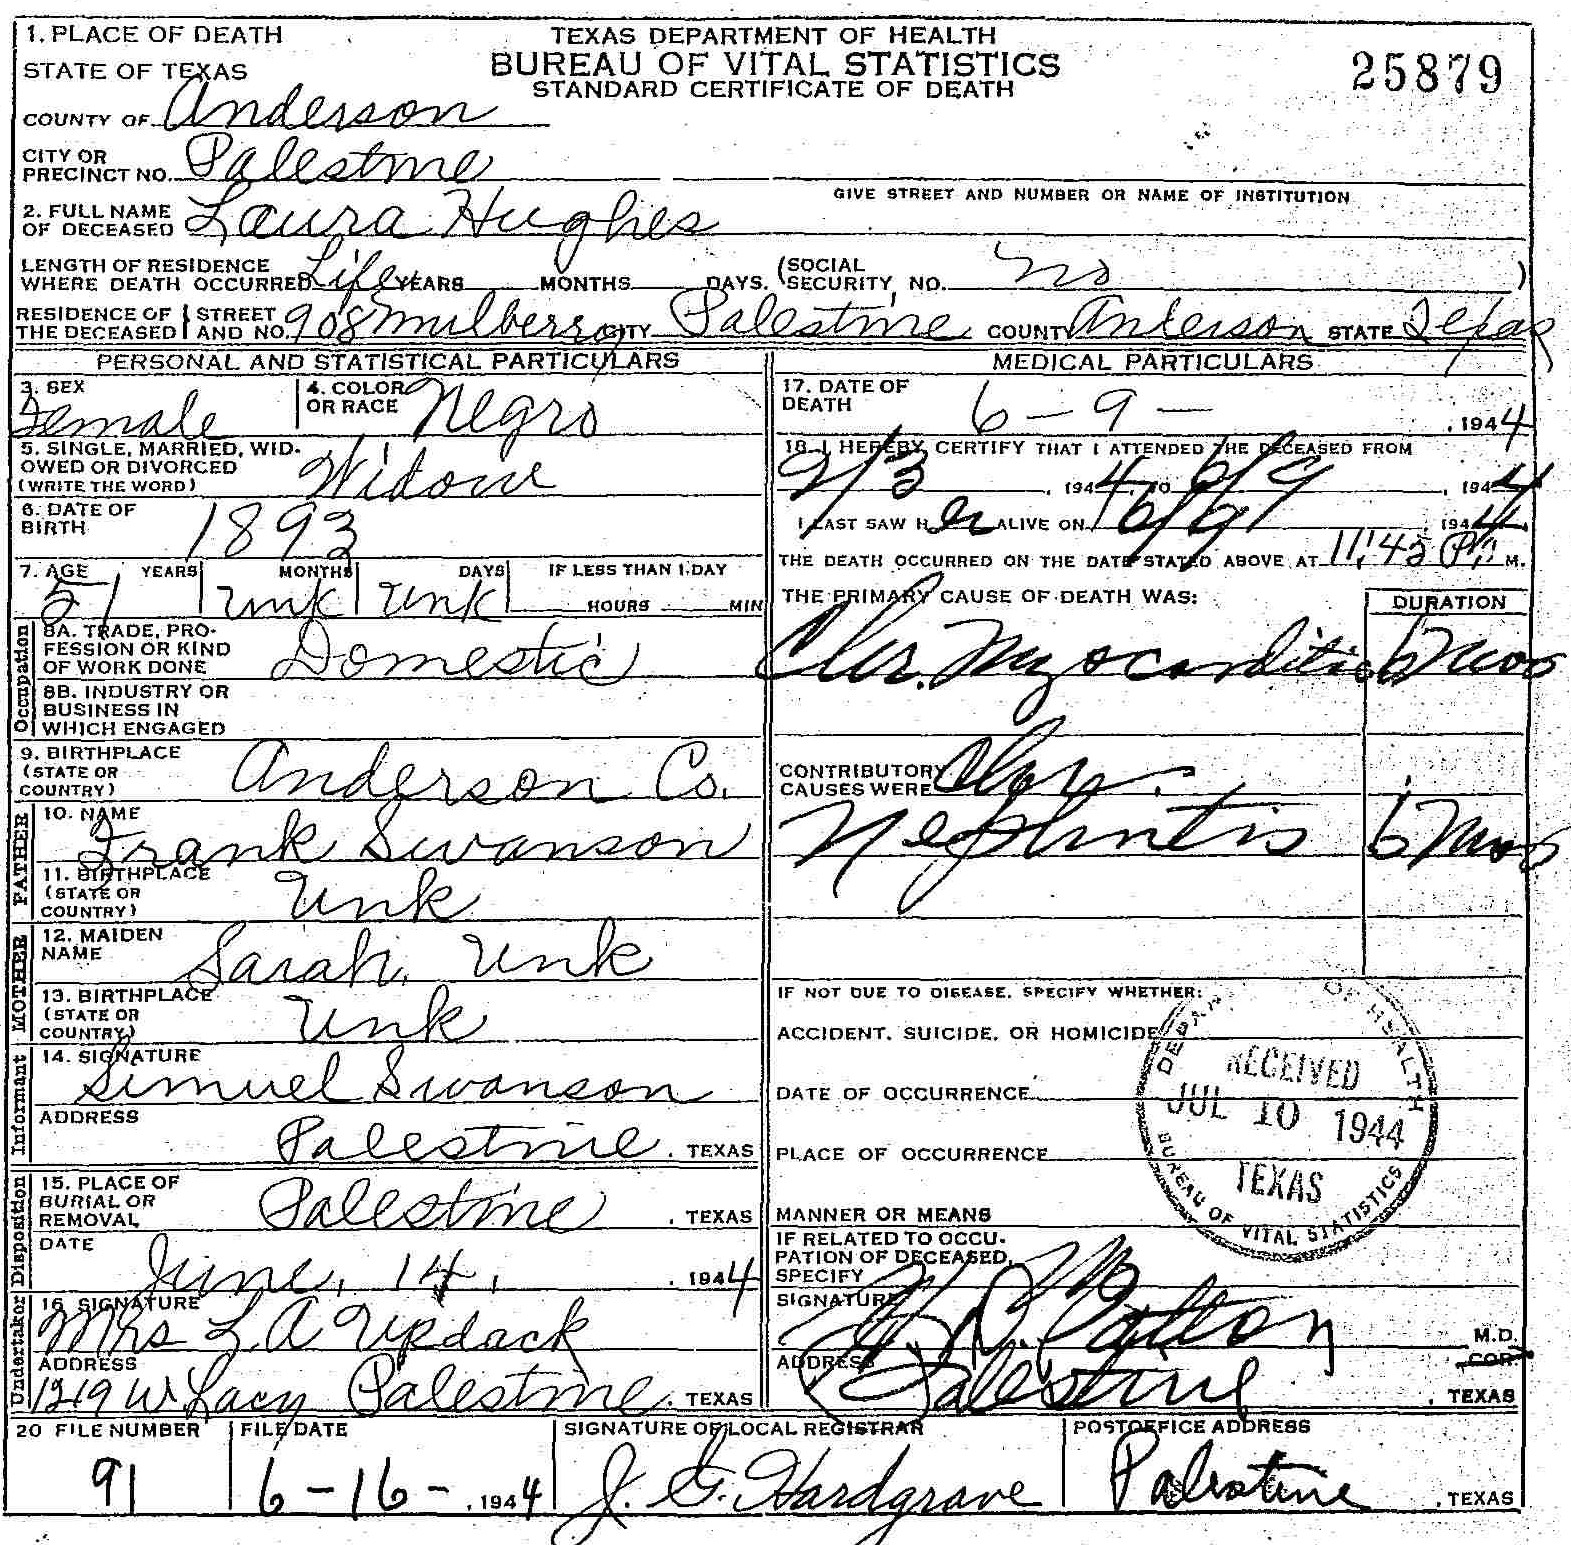 1. PLACE OF DEATH
TEXAS DEPARTMENT OF HEALTH
BUREAU OF VITAL STATISTICS
STANDARD CERTIFICATE OF DEATH
25879
STATE OF TEXAS
COUNTY OF Anderson
CITY OR PRECINCT NO. Palestine
GIVE STREET AND NUMBER OR NAME OF INSTITUTION
2. FULL NAME OF DECEASED Laura Hughes
LENGTH OF RESIDENCE WHERE DEATH OCCURRED Life YEARS MONTHS DAYS. (SOCIAL SECURITY NO. no )
RESIDENCE OF THE DECEASED STREET AND NO. 908 Mulberry CITY Palestine COUNTY Anderson STATE Texas
PERSONAL AND STATISTICAL PARTICULARS
3. SEX Female
4. COLOR OR RACE Negro
5. SINGLE, MARRIED, WIDOWED OR DIVORCED (WRITE THE WORD) Widow
6. DATE OF BIRTH 1893
7. AGE YEARS MONTHS DAYS IF LESS THAN 1 DAY
51 Unk Unk HOURS MIN
Occupation
8A. TRADE, PROFESSION OR KIND OF WORK DONE Domestic
8B. INDUSTRY OR BUSINESS IN WHICH ENGAGED
9. BIRTHPLACE (STATE OR COUNTRY) Anderson Co.
FATHER
10. NAME Frank Swanson
11. BIRTHPLACE (STATE OR COUNTRY) Unk
MOTHER
12. MAIDEN NAME Sarah, Unk
13. BIRTHPLACE (STATE OR COUNTRY) Unk
Informant
14. SIGNATURE Simuel Swanson
ADDRESS Palestine. TEXAS
Disposition
15. PLACE OF BURIAL OR REMOVAL Palestine. TEXAS
DATE June, 14, . 1944
Undertaker
16. SIGNATURE Mrs L. A Updack
ADDRESS 1219 W Lacy Palestine. TEXAS
MEDICAL PARTICULARS
17. DATE OF DEATH 6-9- , 1944
18. I HEREBY CERTIFY THAT I ATTENDED THE DECEASED FROM
2/3 , 1944, TO 6/9 , 1944
I LAST SAW Her ALIVE ON 6/9 , 1944
THE DEATH OCCURRED ON THE DATE STATED ABOVE AT 11:45 P. M.
THE PRIMARY CAUSE OF DEATH WAS: DURATION
Chr. Myocarditis 6 mos
CONTRIBUTORY CAUSES WERE Chr.
Nephritis 6 mos
IF NOT DUE TO DISEASE, SPECIFY WHETHER:
ACCIDENT, SUICIDE, OR HOMICIDE
DATE OF OCCURRENCE
PLACE OF OCCURRENCE
MANNER OR MEANS
IF RELATED TO OCCUPATION OF DECEASED, SPECIFY
OF HEALTH
RECEIVED
JUL 10 1944
TEXAS
BUREAU OF VITAL STATISTICS
SIGNATURE Patton M.D.
COR
ADDRESS Palestine. TEXAS
20 FILE NUMBER 91
FILE DATE 6-16-, 1944
SIGNATURE OF LOCAL REGISTRAR J. G. Hardgrave
POSTOFFICE ADDRESS Palestine. TEXAS